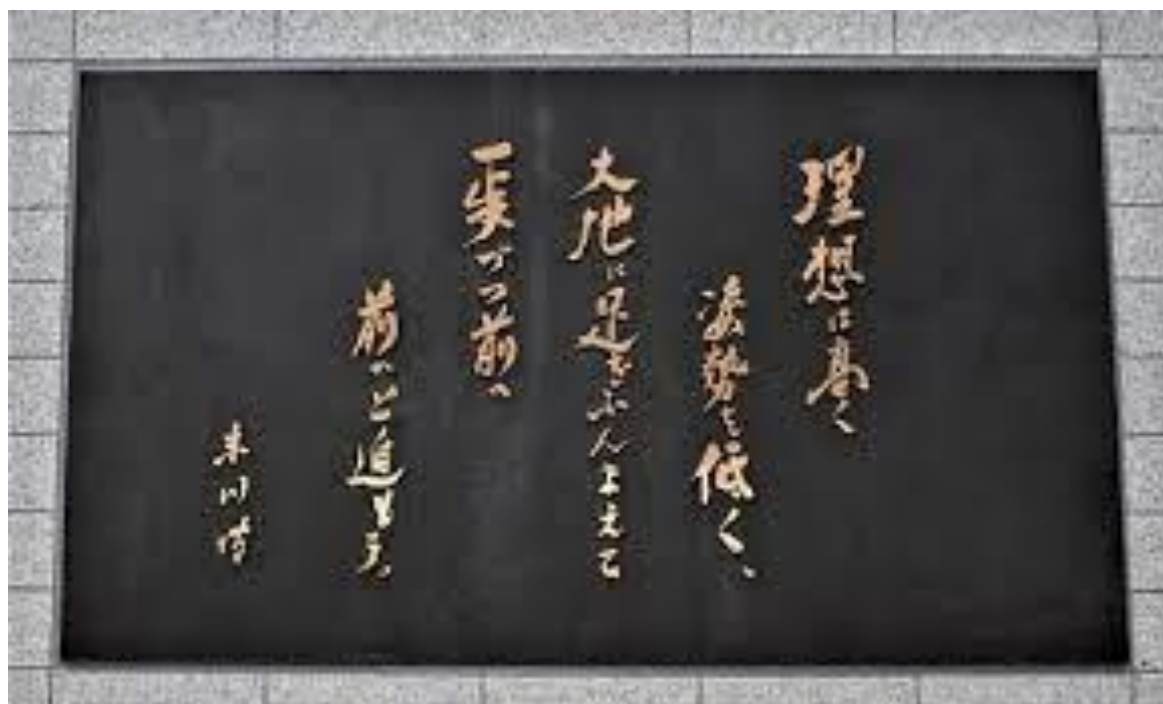 理想は高く
姿勢を低く、
大地に足をふんまえて
一歩づつ前へ
前へと進もう。